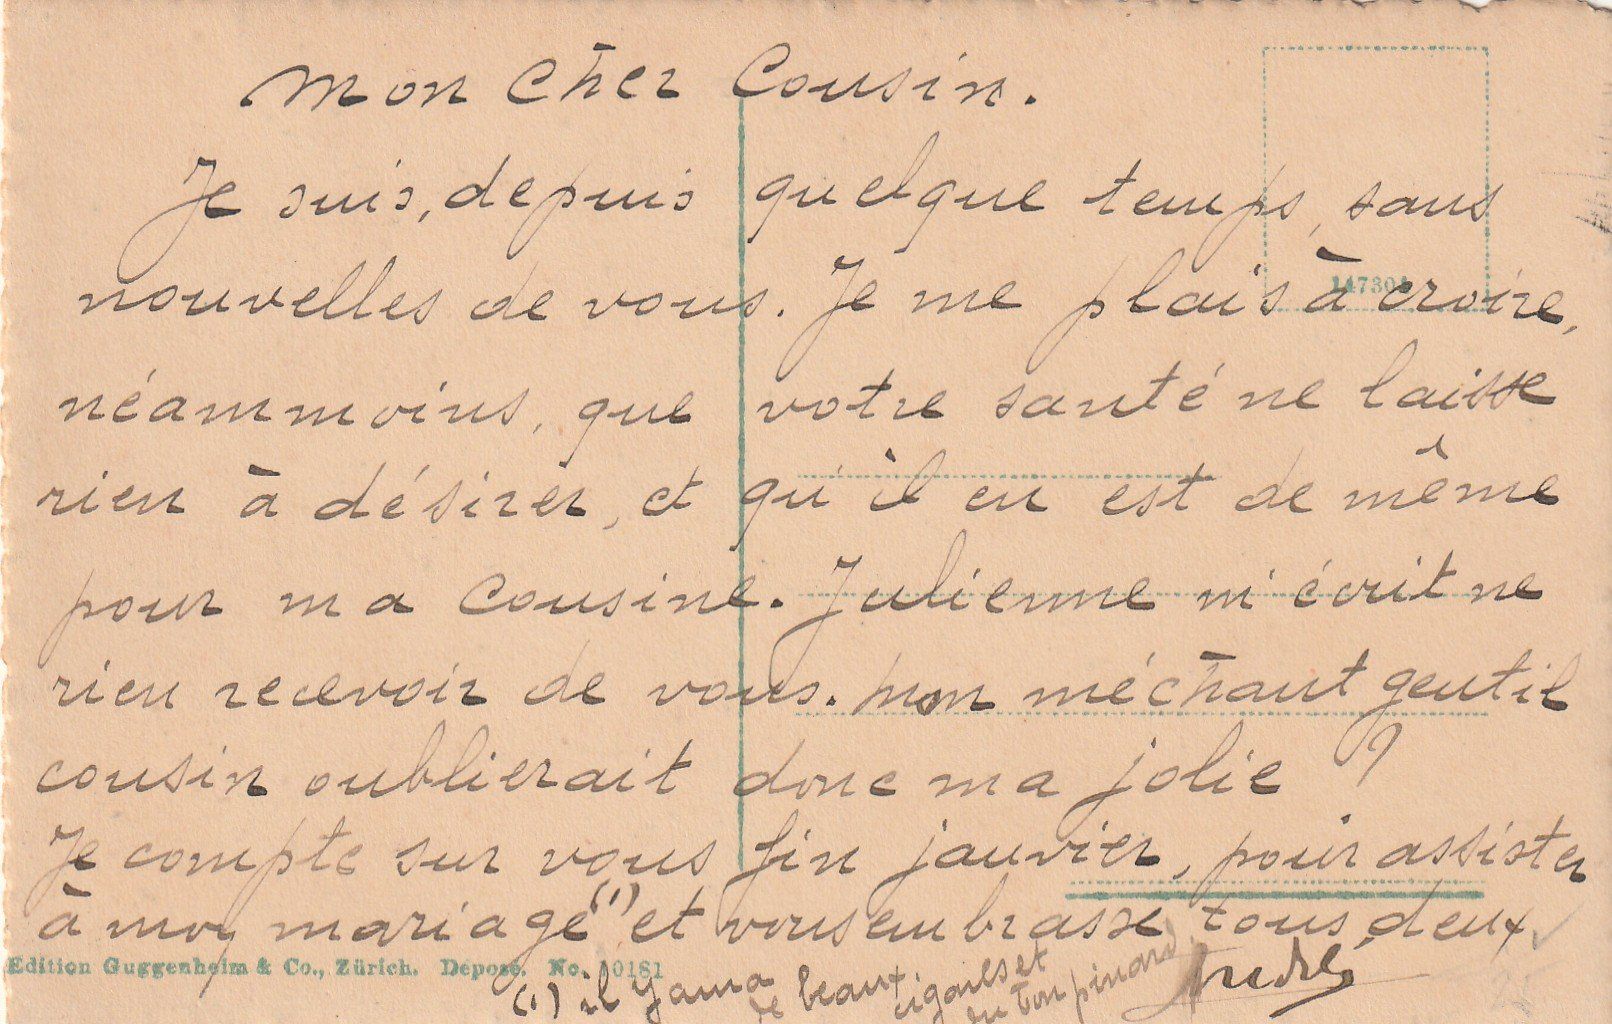 Mon Cher Cousin.
Je suis, depuis quelque temps, sans
nouvelles de vous. Je me plais à croire,
néammoins, que votre santé ne laisse
rien à désirer, et qu'il en est de même
pour ma cousine. Julienne m'écrit ne
rien recevoir de vous. mon méchant gentil
cousin oublierait donc ma jolie ?
Je compte sur vous fin janvier, pour assister
à mon mariage (1) et vous embrasse tous deux.
(1) il y aura de beaux cigares et du bon pinard
Edition Guggenheim & Co., Zürich. Déposé. No. 10161